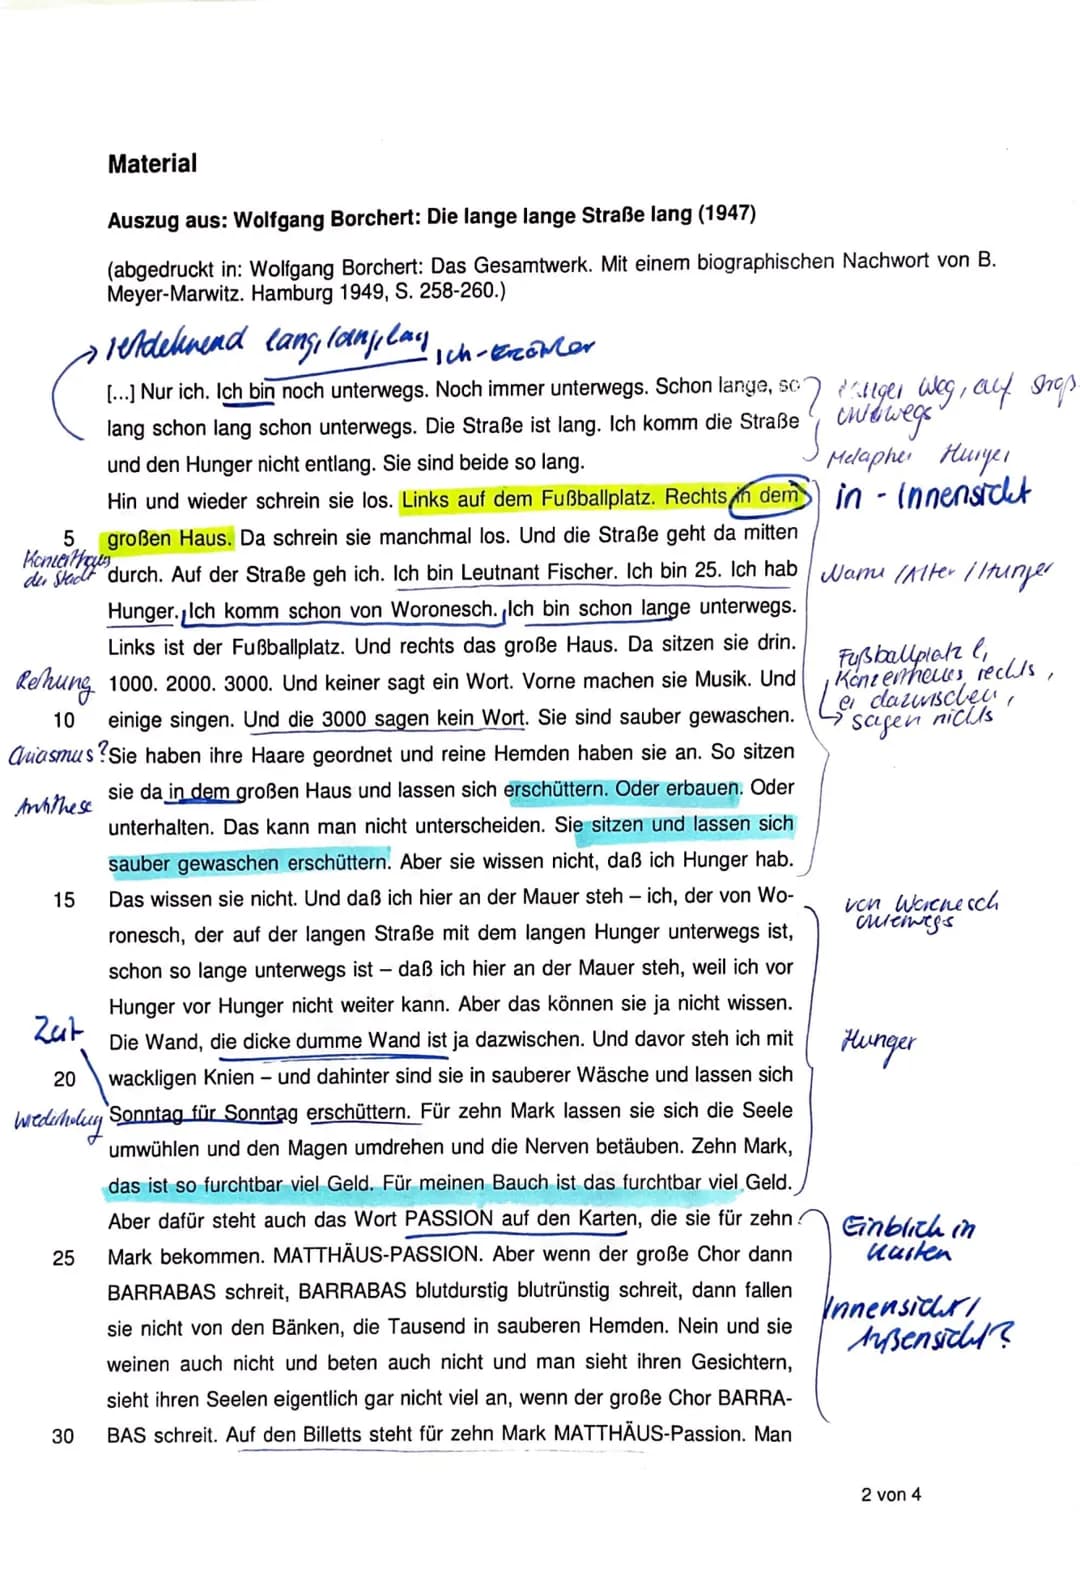 Material
Auszug aus: Wolfgang Borchert: Die lange lange Straße lang (1947)
(abgedruckt in: Wolfgang Borchert: Das Gesamtwerk. Mit einem biographischen Nachwort von B.
Meyer-Marwitz. Hamburg 1949, S. 258-260.)
lang, lang, lang
Ich-Erzähler
[...] Nur ich. Ich bin noch unterwegs. Noch immer unterwegs. Schon lange, so
Weg, auf
unterwegs
lang schon lang schon unterwegs. Die Straße ist lang. Ich komm die Straße
und den Hunger nicht entlang. Sie sind beide so lang.
Metapher Hunger
Hin und wieder schrein sie los. Links auf dem Fußballplatz. Rechts in dem
in - Innensicht
5 großen Haus. Da schrein sie manchmal los. Und die Straße geht da mitten
Konzerthaus
der Stadt
durch. Auf der Straße geh ich. Ich bin Leutnant Fischer. Ich bin 25. Ich hab
Name / Alter / Hunger
Hunger. Ich komm schon von Woronesch. Ich bin schon lange unterwegs.
Links ist der Fußballplatz. Und rechts das große Haus. Da sitzen sie drin.
Fußballplatz l,
Reihung
1000. 2000. 3000. Und keiner sagt ein Wort. Vorne machen sie Musik. Und
Konzerthaus rechts,
er dazwischen,
10 einige singen. Und die 3000 sagen kein Wort. Sie sind sauber gewaschen.
→ sagen nichts
Chiasmus?
Sie haben ihre Haare geordnet und reine Hemden haben sie an. So sitzen
Antithese
sie da in dem großen Haus und lassen sich erschüttern. Oder erbauen. Oder
unterhalten. Das kann man nicht unterscheiden. Sie sitzen und lassen sich
sauber gewaschen erschüttern. Aber sie wissen nicht, daß ich Hunger hab.
15 Das wissen sie nicht. Und daß ich hier an der Mauer steh – ich, der von Wo-
von Woronesch
unterwegs
ronesch, der auf der langen Straße mit dem langen Hunger unterwegs ist,
schon so lange unterwegs ist – daß ich hier an der Mauer steh, weil ich vor
Hunger vor Hunger nicht weiter kann. Aber das können sie ja nicht wissen.
Zeit
Die Wand, die dicke dumme Wand ist ja dazwischen. Und davor steh ich mit
Hunger
20 wackligen Knien – und dahinter sind sie in sauberer Wäsche und lassen sich
Wiederholung
Sonntag für Sonntag erschüttern. Für zehn Mark lassen sie sich die Seele
umwühlen und den Magen umdrehen und die Nerven betäuben. Zehn Mark,
das ist so furchtbar viel Geld. Für meinen Bauch ist das furchtbar viel Geld.
Aber dafür steht auch das Wort PASSION auf den Karten, die sie für zehn
Einblich in
Karten
25 Mark bekommen. MATTHÄUS-PASSION. Aber wenn der große Chor dann
BARRABAS schreit, BARRABAS blutdurstig blutrünstig schreit, dann fallen
Innensicht /
Außensicht?
sie nicht von den Bänken, die Tausend in sauberen Hemden. Nein und sie
weinen auch nicht und beten auch nicht und man sieht ihren Gesichtern,
sieht ihren Seelen eigentlich gar nicht viel an, wenn der große Chor BARRA-
30 BAS schreit. Auf den Billetts steht für zehn Mark MATTHÄUS-Passion. Man
2 von 4